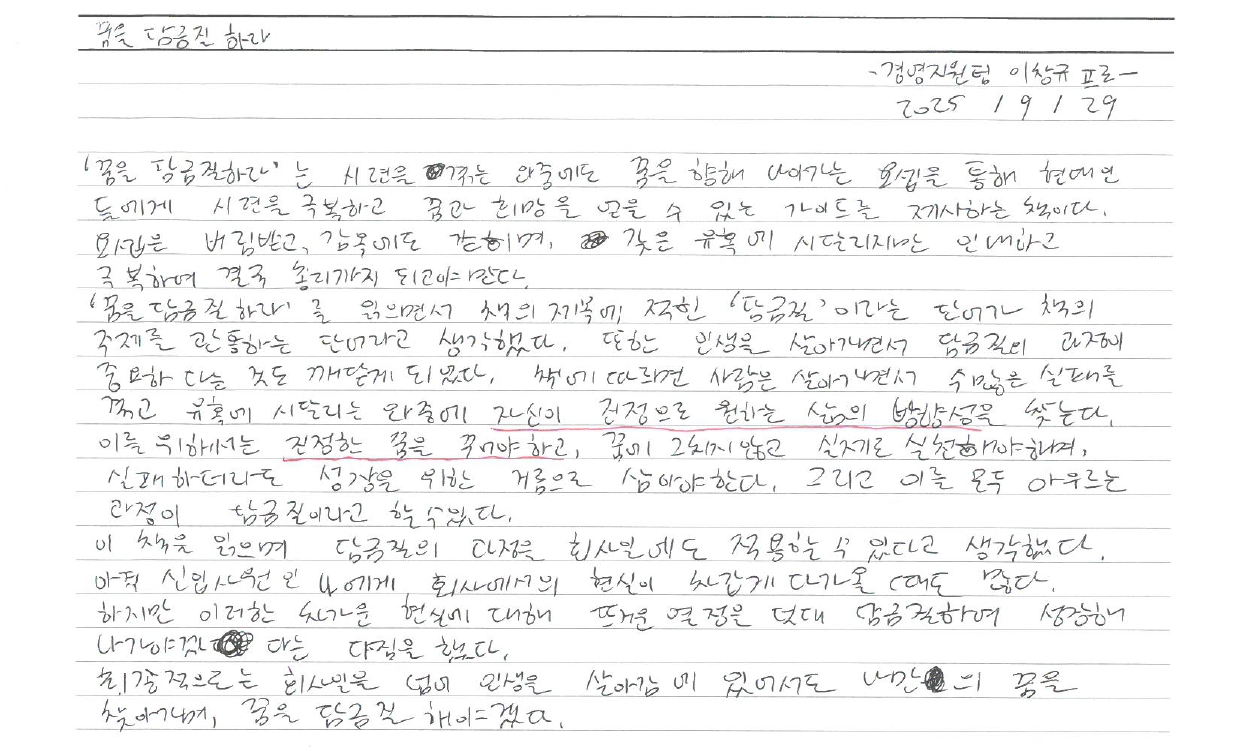 꿈을 담금질 하라
-경영지원팀 이창규 프로-
2025 / 9 / 29
'꿈을 담금질하라'는 시련을 겪는 와중에도 꿈을 향해 나아가는 요셉을 통해 현대인
들에게 시련을 극복하고 꿈과 희망을 얻을 수 있는 가이드를 제시하는 책이다.
요셉은 버림받고, 감옥에도 갇히며, 갖은 유혹에 시달리지만 인내하고
극복하여 결국 총리까지 되고야 만다.
'꿈을 담금질 하라'를 읽으면서 책의 제목에 적힌 '담금질'이라는 단어가 책의
주제를 관통하는 단어라고 생각했다. 또한 인생을 살아가면서 담금질의 과정이
중요하다는 것도 깨닫게 되었다. 책에 따르면 사람은 살아가면서 수많은 실패를
겪고 유혹에 시달리는 와중에 자신이 진정으로 원하는 삶의 방향성을 찾는다.
이를 위해서는 진정한 꿈을 꾸어야 하고, 꿈에 그치지 않고 실제로 실천해야하며,
실패하더라도 성장을 위한 거름으로 삼아야한다. 그리고 이를 모두 아우르는
과정이 담금질이라고 할 수 있다.
이 책을 읽으며 담금질의 과정을 회사일에도 적용할 수 있다고 생각했다.
아직 신입사원인 나에게, 회사에서의 현실이 차갑게 다가올 때도 많다.
하지만 이러한 차가운 현실에 대해 뜨거운 열정을 덧대 담금질하여 성장해
나가야겠다는 다짐을 했다.
최종적으로는 회사일을 넘어 인생을 살아감에 있어서도 나만의 꿈을
찾아가며, 꿈을 담금질 해야겠다.